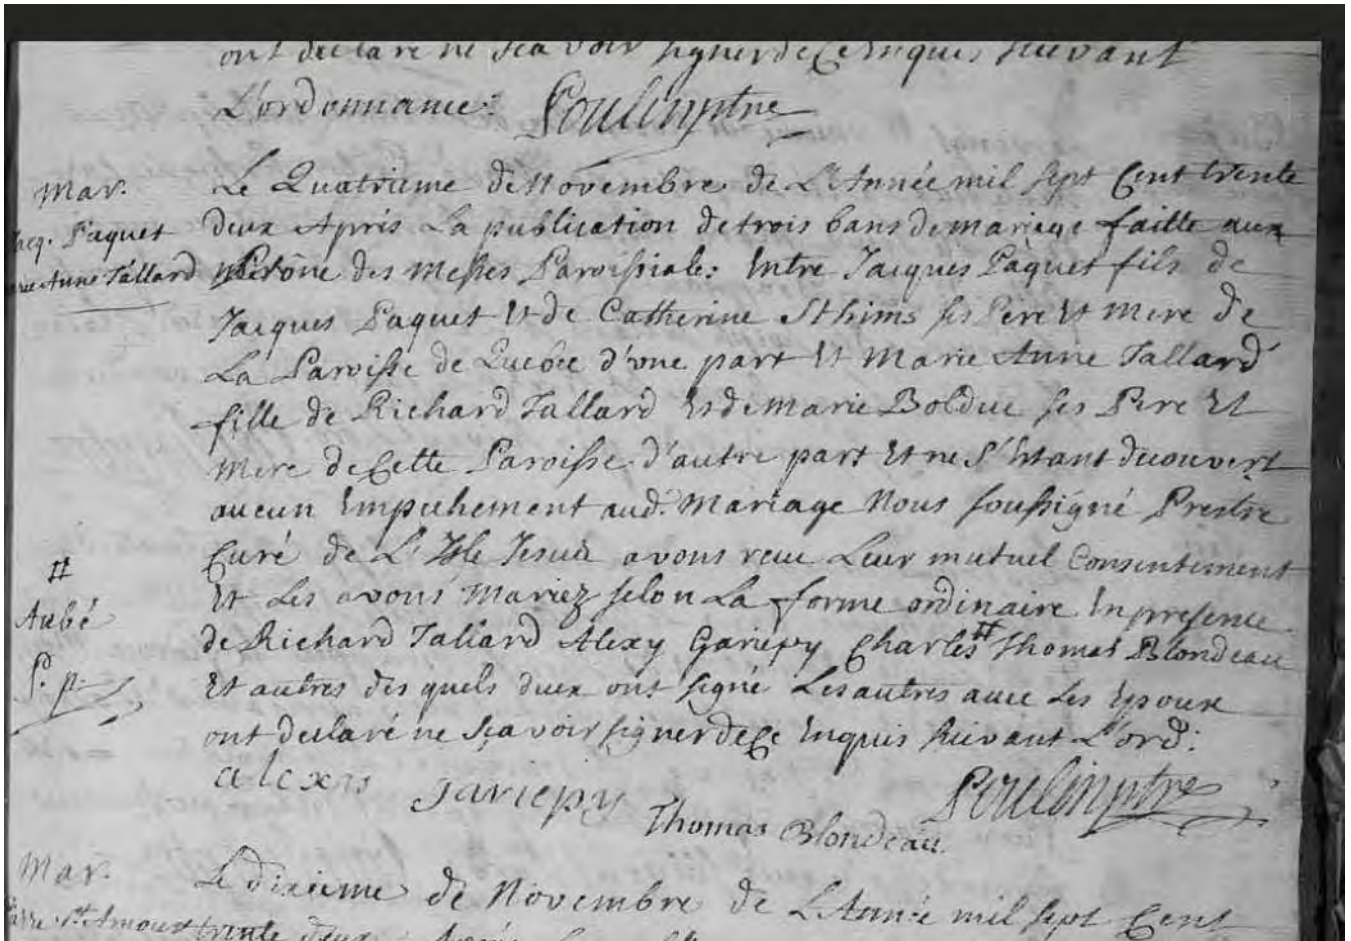 ont declaré ne sçavoir signer de ce enquis suivant
L'ordonnance: Poulin ptre
Mar.
Jacq. Paquet
Marie Anne Tallard
Le Quatrieme de Novembre de L'Année mil sept Cent trente
deux Aprés La publication de trois bans de mariage faitte aux
Prône des Messes Paroissiales Entre Jacques Pàquet fils de
Jacques Paquet Et de Catherine Sthims ses Pere Et mere de
La Paroisse de Quebec d'une part Et Marie Anne Tallard
fille de Richard Tallard Et de marie Bolduc ses Pere Et
Mere de Cette Paroisse d'autre part Et ne S'Estant decouvert
aucun Empechement aud. Mariage Nous soussigné Prestre
Curé de L'Isle Jesus avons receu Leur mutuel Consentement
Et Les avons Mariez selon La forme ordinaire En presence
de Richard Tallard Alexy Gariepy Charles # Thomas Blondeau
Et autres des quels deux ont signé Les autres avec Les Epoux
ont declaré ne sçavoir signer de Ce Enquis Suivant L'ord:
#
Aubé
P. p.
alexis gariepy
Thomas Blondeau
Poulin ptre
Mar.
St Amour
Le dixieme de Novembre de L'Année mil sept Cent
trente deux